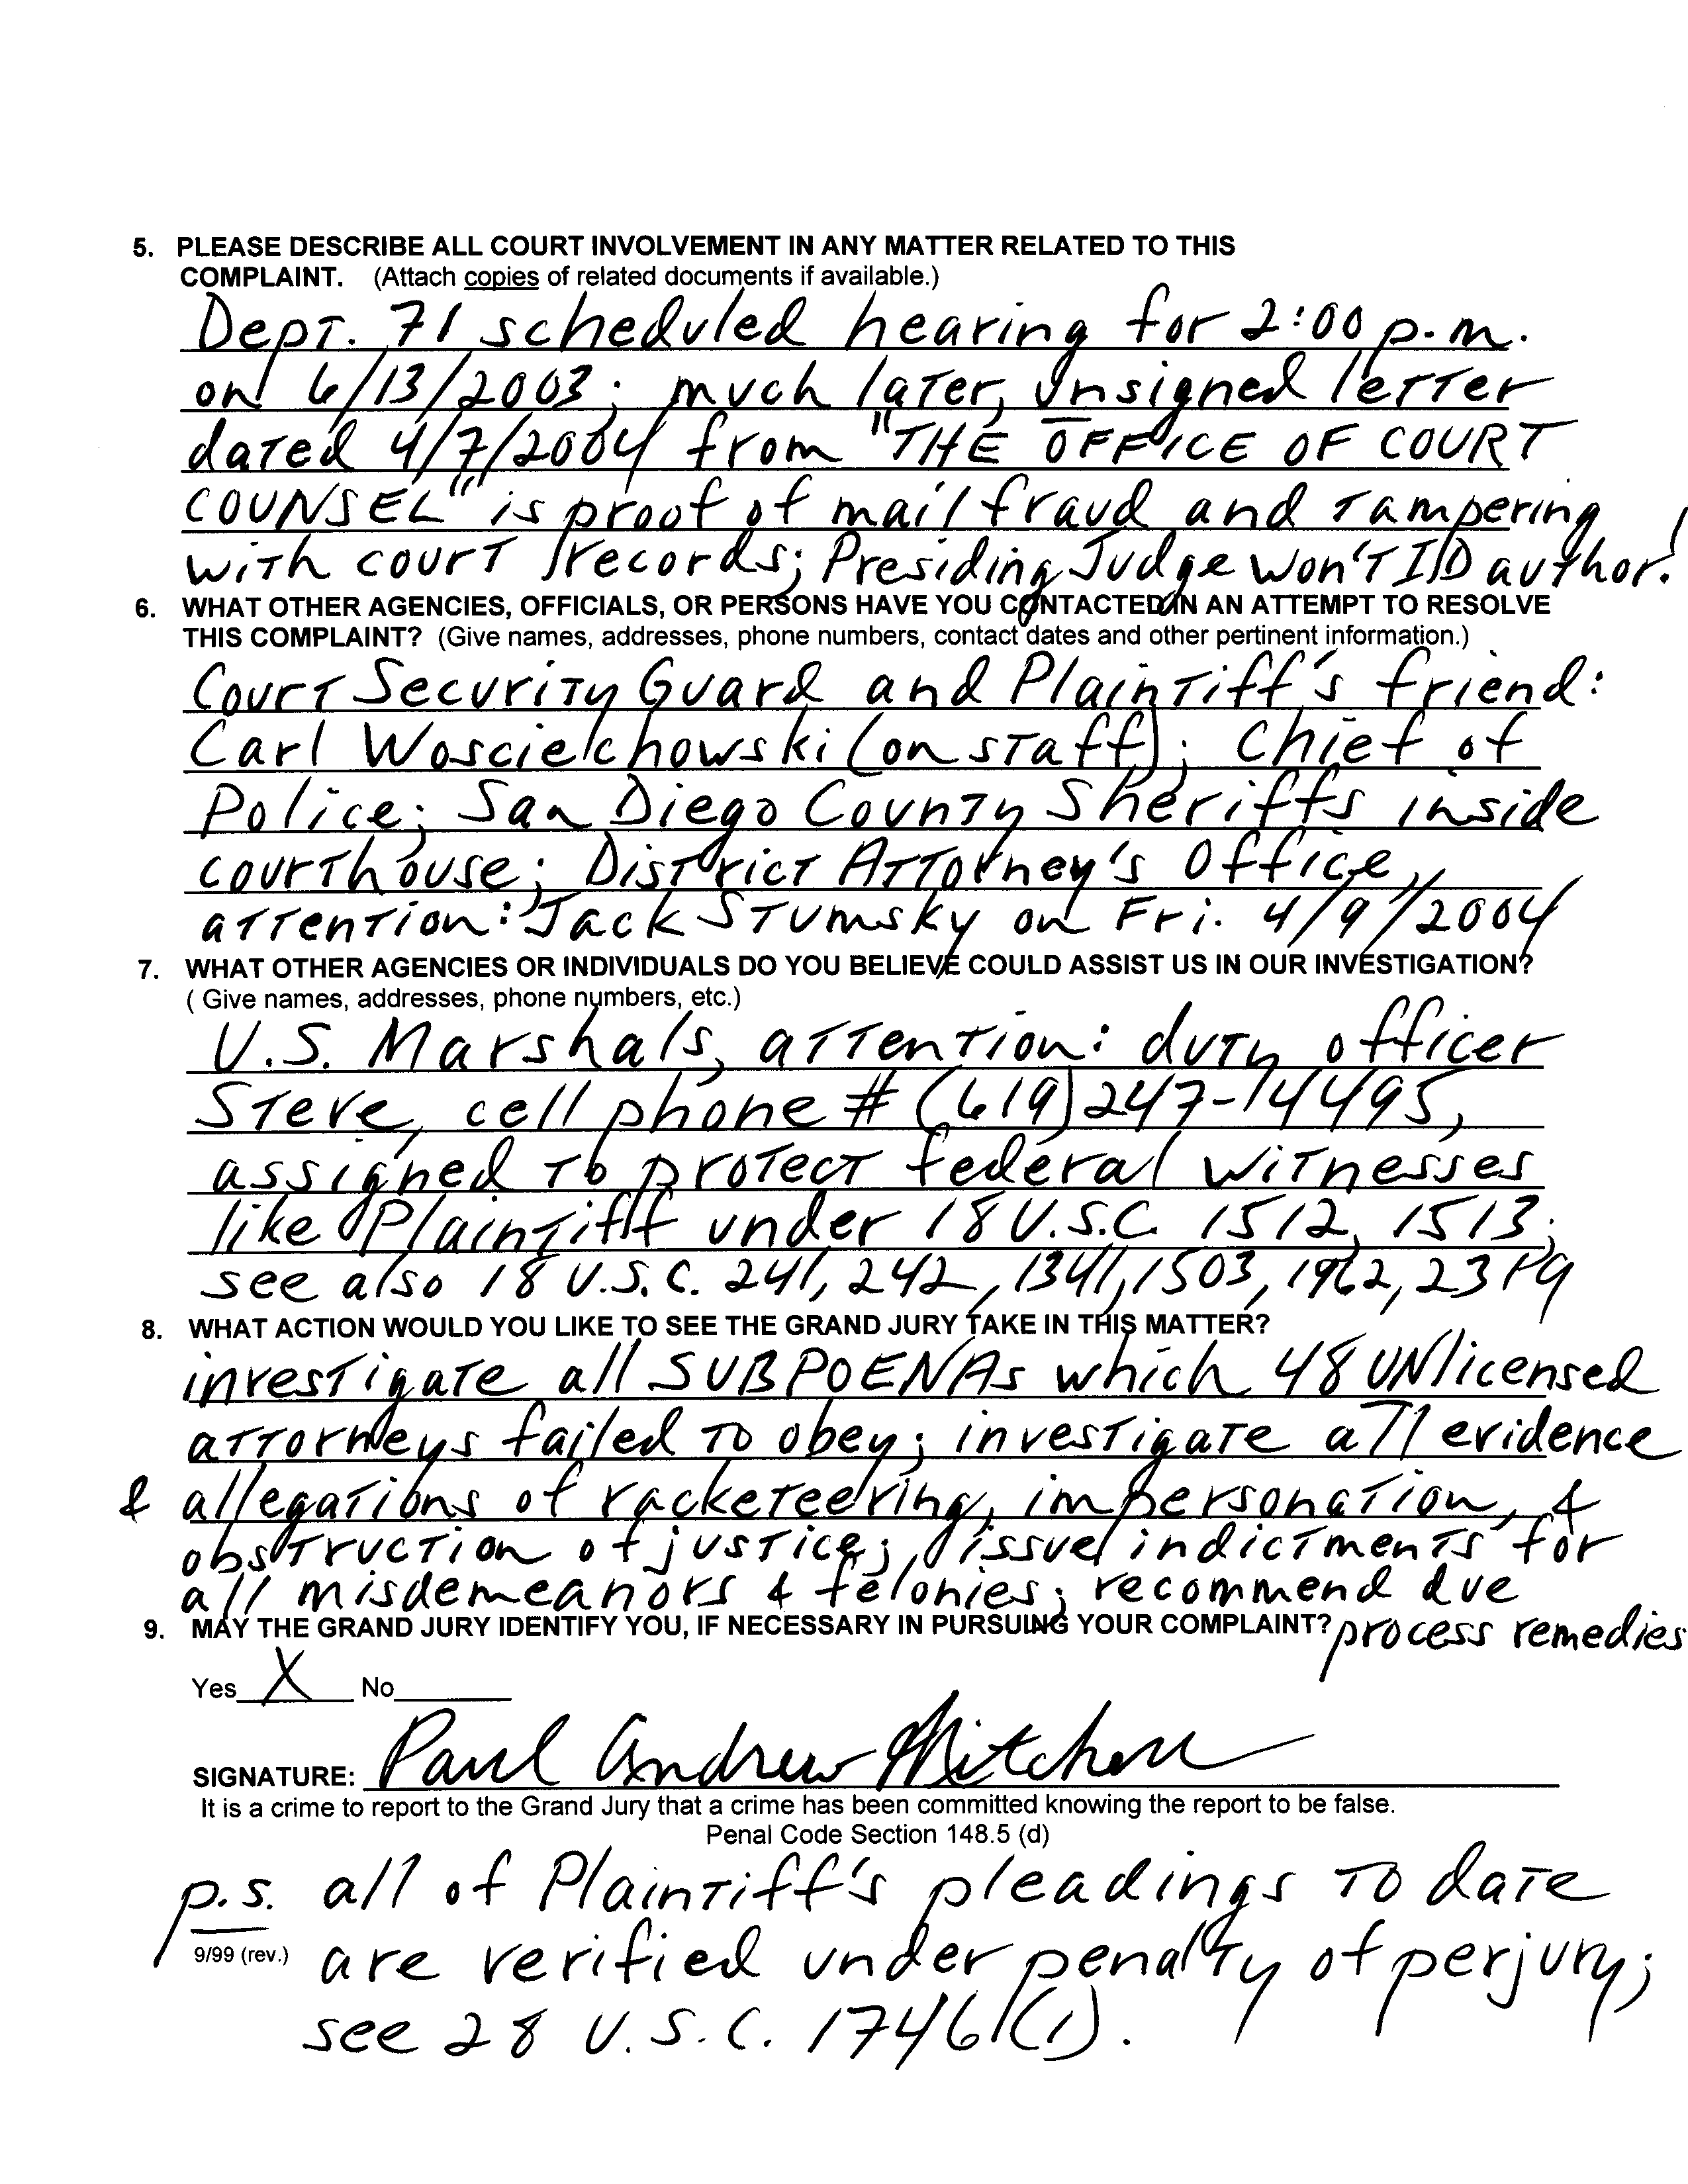 5. PLEASE DESCRIBE ALL COURT INVOLVEMENT IN ANY MATTER RELATED TO THIS
COMPLAINT. (Attach copies of related documents if available.)
Dept. 71 scheduled hearing for 2:00 p.m.
on 6/13/2003; much later, unsigned letter
dated 4/7/2004 from "THE OFFICE OF COURT
COUNSEL" is proof of mail fraud and tampering
with court records; Presiding Judge won't ID author!
6. WHAT OTHER AGENCIES, OFFICIALS, OR PERSONS HAVE YOU CONTACTED IN AN ATTEMPT TO RESOLVE
THIS COMPLAINT? (Give names, addresses, phone numbers, contact dates and other pertinent information.)
Court Security Guard and Plaintiff's friend:
Carl Woscielchowski (on staff); Chief of
Police; San Diego County Sheriffs inside
courthouse; District Attorney's Office,
attention: Jack Stumsky on Fri. 4/9/2004
7. WHAT OTHER AGENCIES OR INDIVIDUALS DO YOU BELIEVE COULD ASSIST US IN OUR INVESTIGATION?
( Give names, addresses, phone numbers, etc.)
U.S. Marshals, attention: duty officer
Steve, cell phone # (619)247-14495,
assigned to protect federal witnesses
like Plaintiff under 18 U.S.C. 1512, 1513;
see also 18 U.S.C. 241, 242, 1341, 1503, 1962,
8. WHAT ACTION WOULD YOU LIKE TO SEE THE GRAND JURY TAKE IN THIS MATTER?
investigate all SUBPOENAs which 48 UNlicensed
attorneys failed to obey; investigate all evidence
& allegations of racketeering, impersonation, &
obstruction of justice; issue indictments for
all misdemeanors & felonies; recommend due
9. MAY THE GRAND JURY IDENTIFY YOU, IF NECESSARY IN PURSUING YOUR COMPLAINT? process remedies
Yes X No
SIGNATURE: Paul Andrew Mitchell
It is a crime to report to the Grand Jury that a crime has been committed knowing the report to be false.
Penal Code Section 148.5 (d)
p.s. all of Plaintiff's pleadings to date
9/99 (rev.) are verified under penalty of perjury;
see 28 U.S.C. 1746(1).